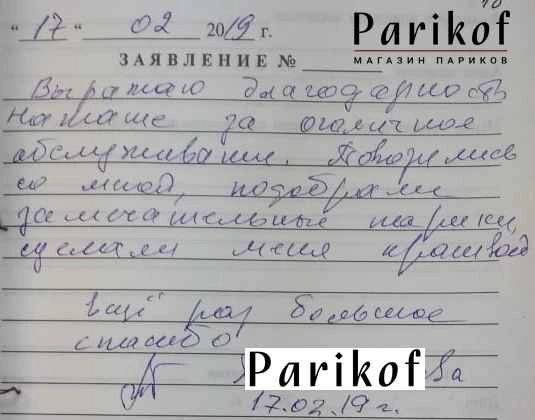 "17" 02 2019 г.
Parikof
МАГАЗИН ПАРИКОВ
ЗАЯВЛЕНИЕ №
Выражаю благодарность
Наташе за отличное
обслуживание. Повозились
со мной, подобрали
замечательные парики,
сделали меня красивой
Ещё раз большое
спасибо
Parikof ва
17.02.19 г.